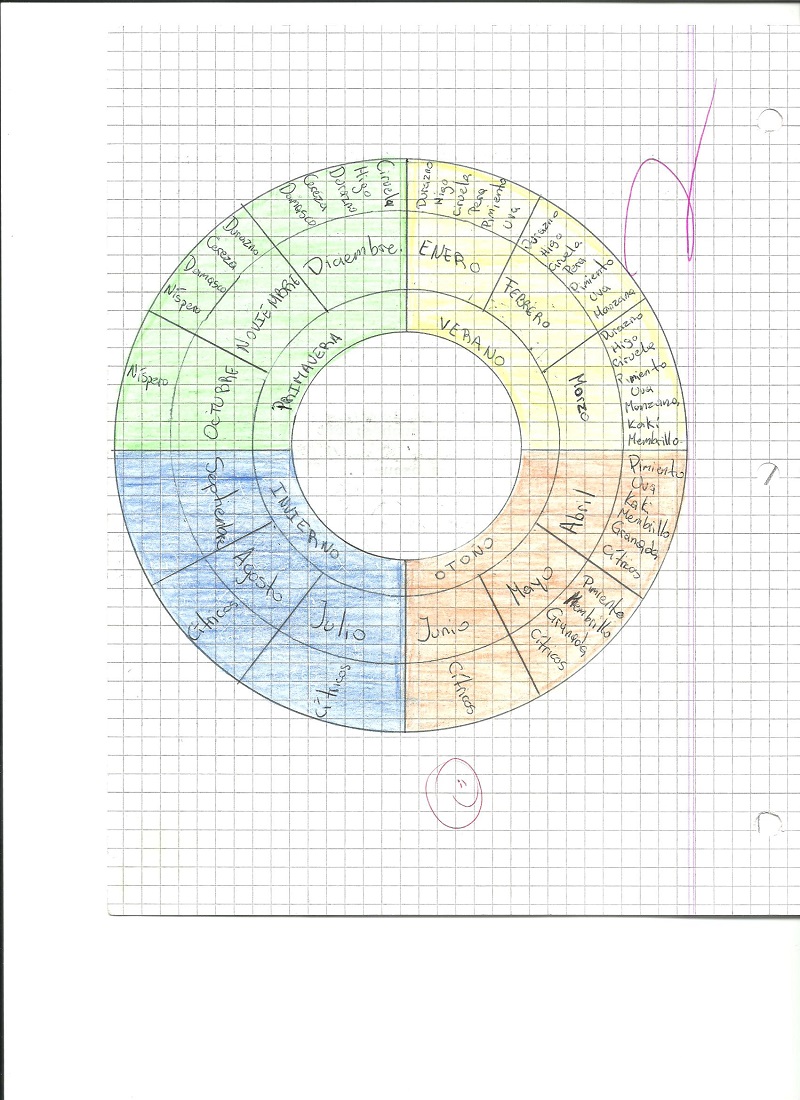 VERANO
ENERO
Durazno
Higo
Ciruela
Pera
Pimiento
Uva
FEBRERO
Durazno
Higo
Ciruela
Pera
Pimiento
Uva
Manzana
Marzo
Durazno
Higo
Ciruela
Pimiento
Uva
Manzana
Kaki
Membrillo
OTOÑO
Abril
Pimiento
Uva
Kaki
Membrillo
Granada
Cítricos
Mayo
Pimiento
Membrillo
Granada
Cítricos
Junio
Cítricos
INVIERNO
Julio
Cítricos
Agosto
Cítricos
Septiembre
PRIMAVERA
OCTUBRE
Níspero
NOVIEMBRE
Níspero
Damasco
Cereza
Durazno
Diciembre.
Damasco
Cereza
Durazno
Higo
Ciruela